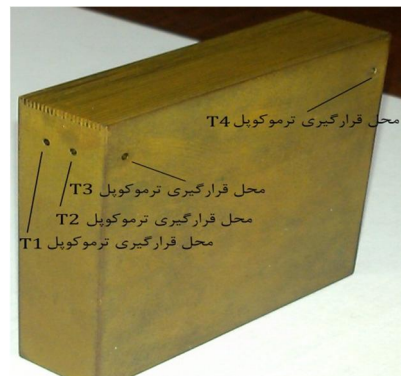 محل قرارگیری ترموکوپل T4
محل قرارگیری ترموکوپل T3
محل قرارگیری ترموکوپل T2
محل قرارگیری ترموکوپل T1